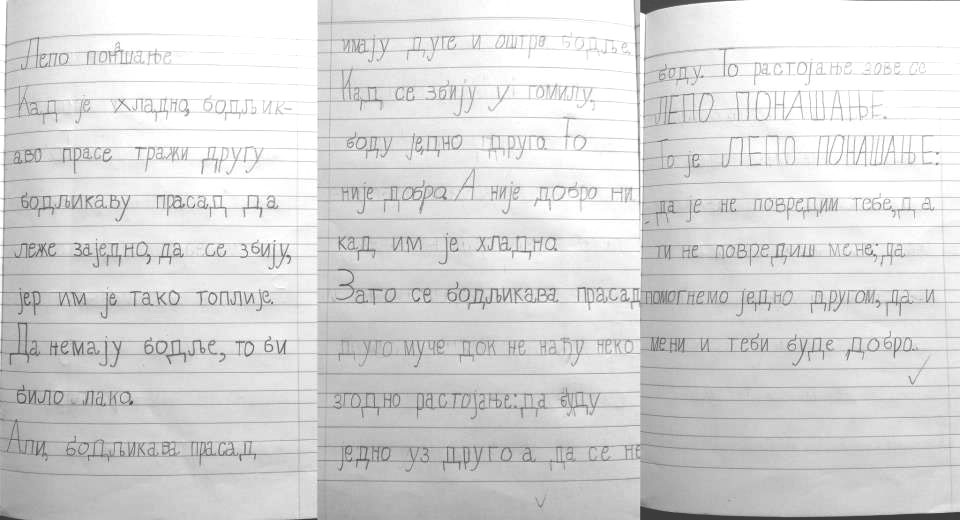 Лепо понашање
Кад је хладно, бодљик-
аво прасе тражи другу
бодљикаву прасад да
леже заједно, да се збију,
јер им је тако топлије.
Да немају бодље, то би
било лако.
Али, бодљикава прасад
имају дуге и оштре бодље.
Кад се збију у гомилу,
боду једно друго. То
није добро. А није добро ни
кад им је хладно.
Зато се бодљикава прасад
дуго муче док не нађу неко
згодно растојање: да буду
једно уз друго а да се не
боду. То растојање зове се
ЛЕПО ПОНАШАЊЕ.
То је ЛЕПО ПОНАШАЊЕ:
да је не повредим тебе, да
ти не повредиш мене; да
помогнемо једно другом, да и
мени и теби буде добро.